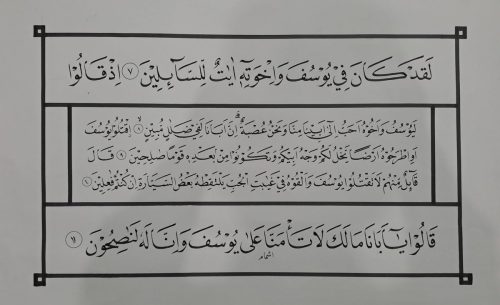 لَقَدْ كَانَ فِيْ يُوْسُفَ وَاِخْوَتِهٖٓ اٰيٰتٌ لِّلسَّآئِلِيْنَ ۷ اِذْ قَالُوْا
لَيُوْسُفُ وَاَخُوْهُ اَحَبُّ اِلٰٓى اَبِيْنَا مِنَّا وَنَحْنُ عُصْبَةٌ ۗ اِنَّ اَبَانَا لَفِيْ ضَلٰلٍ مُّبِيْنٍ ۸ اِقْتُلُوْا يُوْسُفَ
اَوِاطْرَحُوْهُ اَرْضًا يَّخْلُ لَكُمْ وَجْهُ اَبِيْكُمْ وَتَكُوْنُوْا مِنْۢ بَعْدِهٖ قَوْمًا صٰلِحِيْنَ ۹ قَالَ
قَآئِلٌ مِّنْهُمْ لَا تَقْتُلُوْا يُوْسُفَ وَاَلْقُوْهُ فِيْ غَيٰبَتِ الْجُبِّ يَلْتَقِطْهُ بَعْضُ السَّيَّارَةِ اِنْ كُنْتُمْ فٰعِلِيْنَ ۱۰
قَالُوْا يٰٓاَبَانَا مَا لَكَ لَا تَأْمَنَّا عَلٰى يُوْسُفَ وَاِنَّا لَهٗ لَنٰصِحُوْنَ ۱۱
اشمام